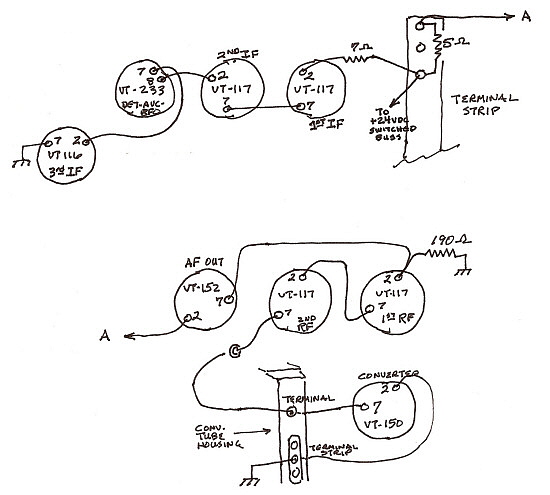 A
2ND IF
7Ω
5Ω
7
8
VT-233
DET-AVC-
BFO
2
VT-117
7
2
VT-117
7
1ST IF
TO
+24VDC
SWITCHED
BUSS
TERMINAL
STRIP
7
2
VT116
3RD IF
190Ω
AF OUT
VT-152
7
2
2
VT-117
7
2ND
RF
2
VT-117
7
1ST RF
A
CONVERTER
2
7
VT-150
TERMINAL
CONV.
TUBE
HOUSING
TERMINAL
STRIP